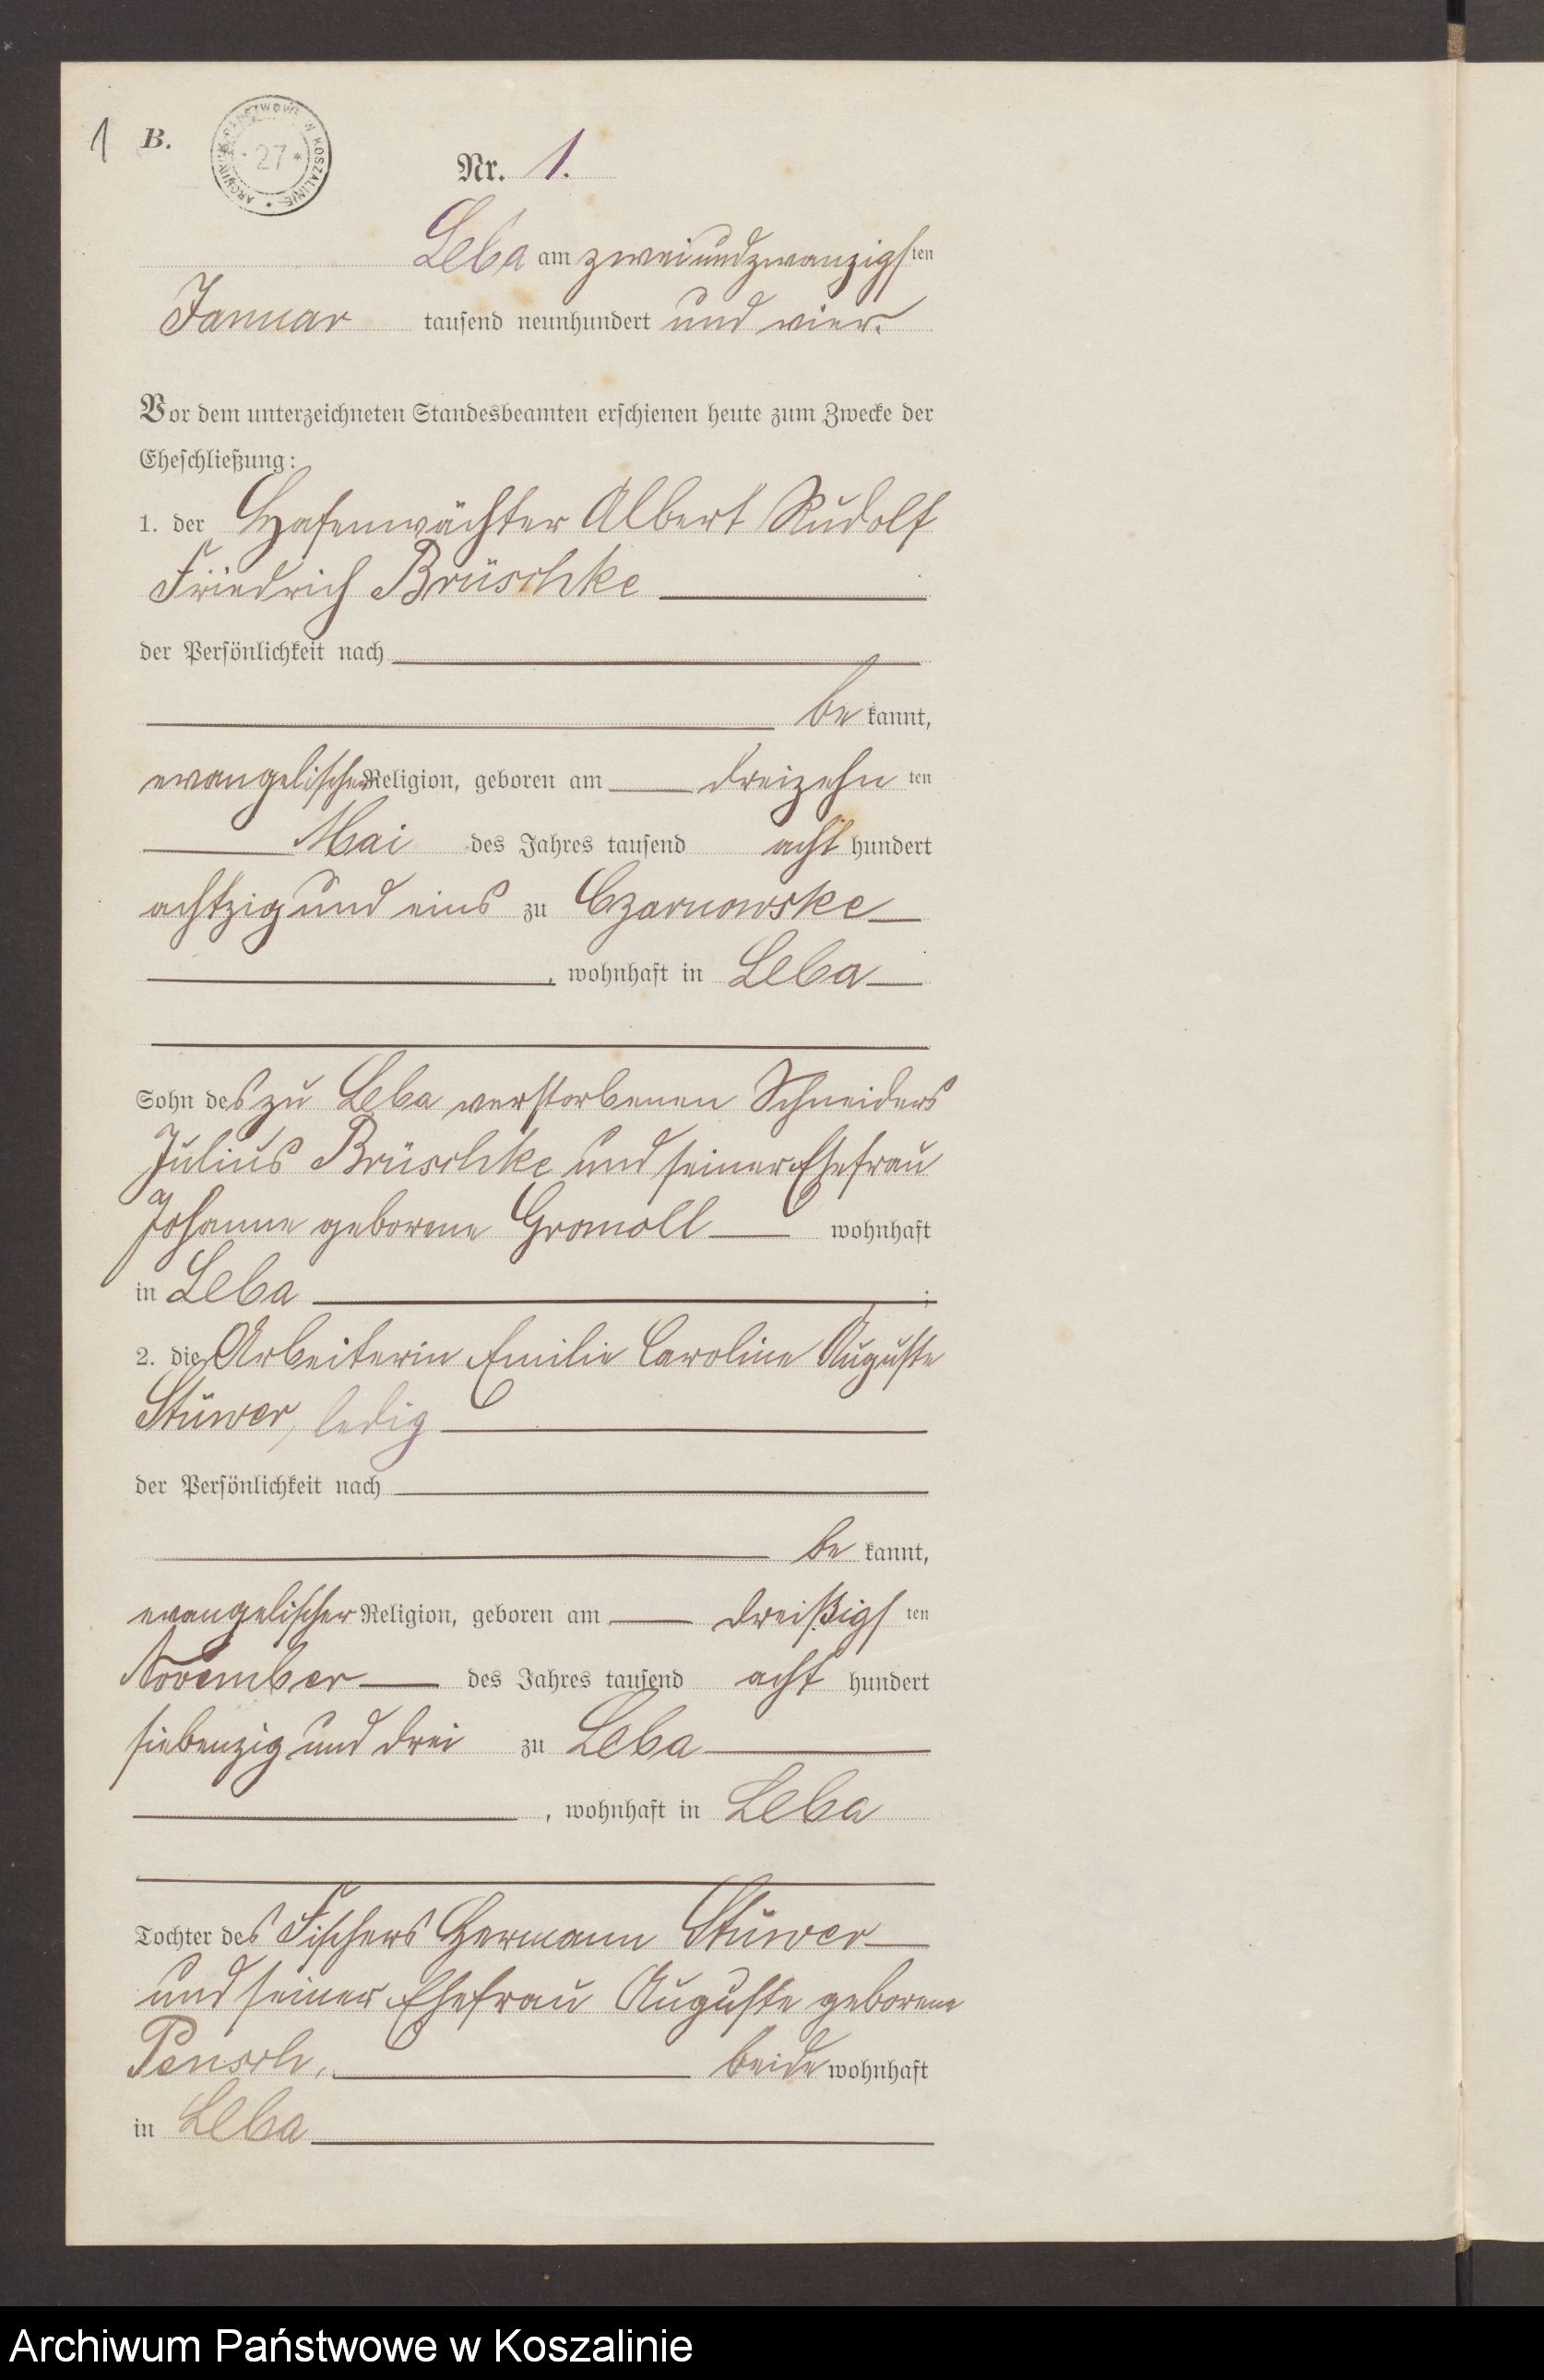 1 B.
ARCHIWUM PAŃSTWOWE W KOSZALINIE * 27 *
Nr. 1.
Leba am zweiundzwanzigsten
Januar tausend neunhundert und vier.
Vor dem unterzeichneten Standesbeamten erschienen heute zum Zwecke der
Eheschließung:
1. der Hafenwächter Albert Rudolf
Friedrich Brüschke
der Persönlichkeit nach
be kannt,
evangelischer Religion, geboren am dreizehn ten
Mai des Jahres tausend acht hundert
achtzig und eins zu Czarnowske
, wohnhaft in Leba
Sohn des zu Leba verstorbenen Schneiders
Julius Brüschke und seiner Ehefrau
Johanne geborene Gromoll wohnhaft
in Leba ;
2. die Arbeiterin Emilie Caroline Auguste
Stüwer, ledig
der Persönlichkeit nach
be kannt,
evangelischer Religion, geboren am dreißigs ten
November des Jahres tausend acht hundert
siebenzig und drei zu Leba
, wohnhaft in Leba
Tochter des Fischers Hermann Stüwer
und seiner Ehefrau Auguste geborene
Pensch, beide wohnhaft
in Leba
Archiwum Państwowe w Koszalinie